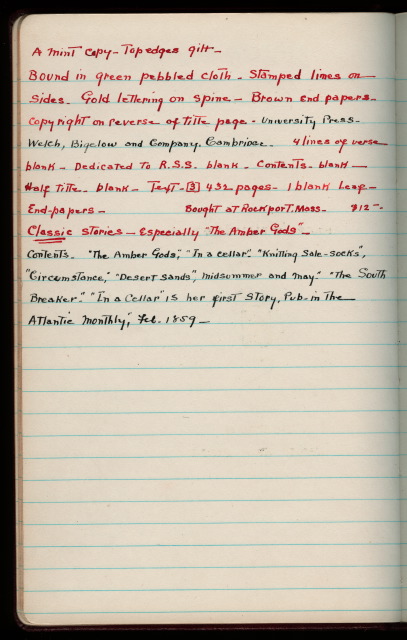 A mint copy - Top edges gilt -
Bound in green pebbled cloth - Stamped lines on
sides. Gold lettering on spine - Brown end papers -
Copyright on reverse of title page - University Press -
Welch, Bigelow and Company, Cambridge. 4 lines of verse
blank - Dedicated to R.S.S. blank - Contents - blank -
Half title - blank - Text - [3] 432 pages - 1 blank leaf -
End-papers - Bought at Rockport, Mass. $12 -
Classic stories - Especially "The Amber Gods" -
Contents. "The Amber Gods", "In a Cellar". "Knitting Sale-socks",
"Circumstance", "Desert Sands", Midsummer and May". "The South
Breaker". "In a Cellar" is her first story, Pub. in the
Atlantic Monthly", Feb. 1859 -